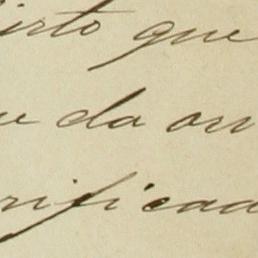 irto que
e da ou
rificad